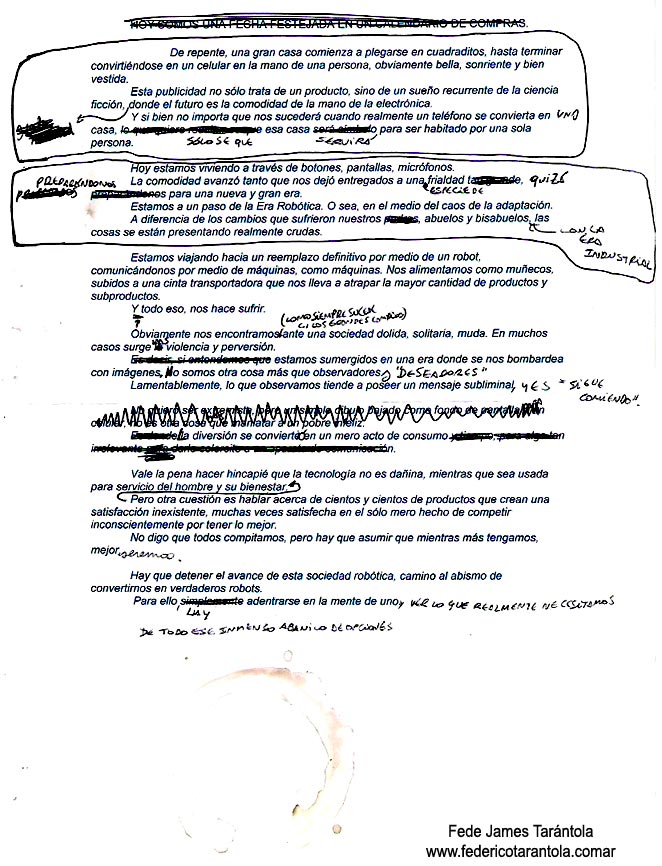 HOY SOMOS UNA FECHA FESTEJADA EN UN CALENDARIO DE COMPRAS.
De repente, una gran casa comienza a plegarse en cuadraditos, hasta terminar
convirtiéndose en un celular en la mano de una persona, obviamente bella, sonriente y bien
vestida.
Esta publicidad no sólo trata de un producto, sino de un sueño recurrente de la ciencia
ficción, donde el futuro es la comodidad de la mano de la electrónica.
Y si bien no importa que nos sucederá cuando realmente un teléfono se convierta en UNA
casa, esa casa para ser habitado por una sola
SÓLO SE QUE SERVIRÁ
persona.
Hoy estamos viviendo a través de botones, pantallas, micrófonos.
La comodidad avanzó tanto que nos dejó entregados a una frialdad QUIZÁ
PREPARÁNDONOS para una nueva y gran era.
ESPECIE DE
Estamos a un paso de la Era Robótica. O sea, en el medio del caos de la adaptación.
A diferencia de los cambios que sufrieron nuestros abuelos y bisabuelos, las
cosas se están presentando realmente crudas.
CON LA
ERA
INDUSTRIAL
Estamos viajando hacia un reemplazo definitivo por medio de un robot,
comunicándonos por medio de máquinas, como máquinas. Nos alimentamos como muñecos,
subidos a una cinta transportadora que nos lleva a atrapar la mayor cantidad de productos y
subproductos.
Y todo eso, nos hace sufrir.
(COMO SIEMPRE SUCEDE
Obviamente nos encontramos ante una sociedad dolida, solitaria, muda. En muchos
casos surge violencia y perversión.
Es decir, si entendemos que estamos sumergidos en una era donde se nos bombardea
con imágenes, No somos otra cosa más que observadores y "DESEADORES"
Lamentablemente, lo que observamos tiende a poseer un mensaje subliminal, Y ES "SIGUE
COMIENDO".
No quiero ser extremista, pero un simple dibujo bajado como fondo de pantalla
celular, no es otra cosa que maniatar a un pobre infeliz.
la diversión se convierte en un mero acto de consumo
irrelevante comunicación.
Vale la pena hacer hincapié que la tecnología no es dañina, mientras que sea usada
para servicio del hombre y su bienestar.
Pero otra cuestión es hablar acerca de cientos y cientos de productos que crean una
satisfacción inexistente, muchas veces satisfecha en el sólo mero hecho de competir
inconscientemente por tener lo mejor.
No digo que todos compitamos, pero hay que asumir que mientras más tengamos,
mejor seremos.
Hay que detener el avance de esta sociedad robótica, camino al abismo de
convertirnos en verdaderos robots.
Para ello, simplemente adentrarse en la mente de uno y VER LO QUE REALMENTE NECESITAMOS
HAY
DE TODO ESE INMENSO ABANICO DE OPCIONES
Fede James Tarántola
www.federicotarantola.comar